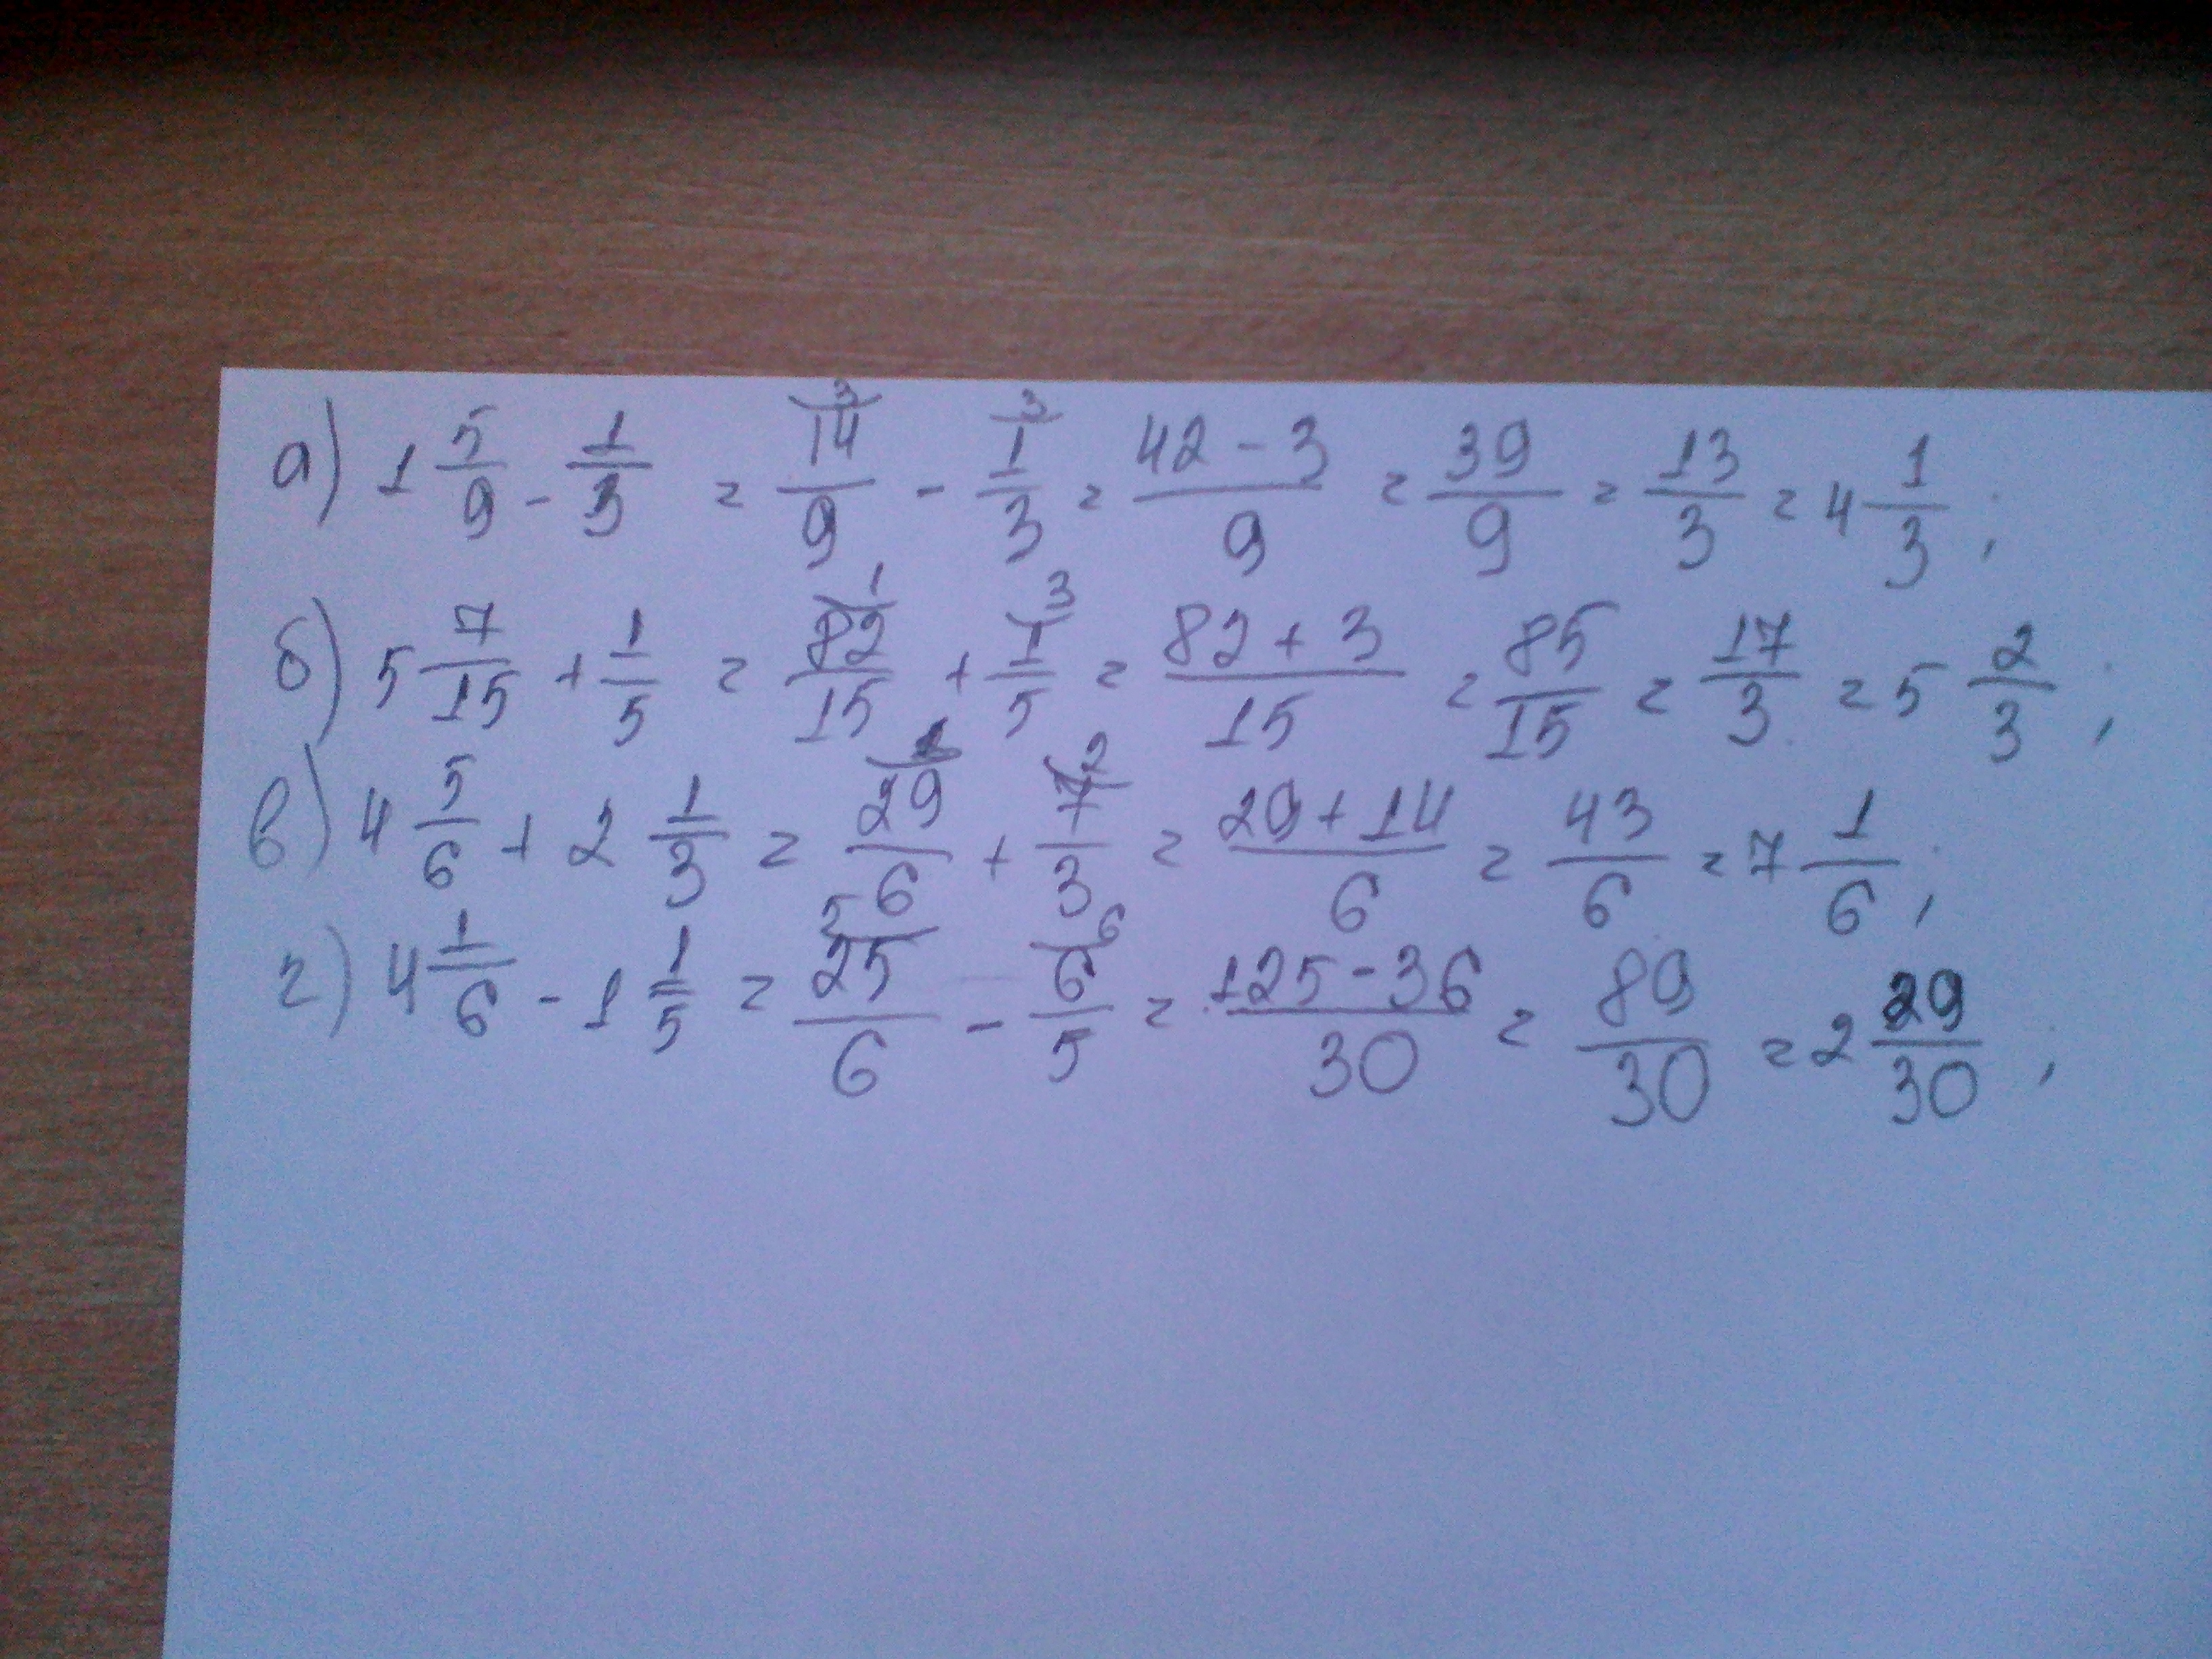 а) 1 5/9 - 1/3 = 14/9 ³ - 1/3 ³ = (42 - 3)/9 = 39/9 = 13/3 = 4 1/3;
б) 5 7/15 + 1/5 = 82/15 ¹ + 1/5 ³ = (82 + 3)/15 = 85/15 = 17/3 = 5 2/3;
в) 4 5/6 + 2 1/3 = 29/6 ¹ + 7/3 ² = (29 + 14)/6 = 43/6 = 7 1/6;
г) 4 1/6 - 1 1/5 = ⁵ 25/6 - 6/5 ⁶ = (125 - 36)/30 = 89/30 = 2 29/30;